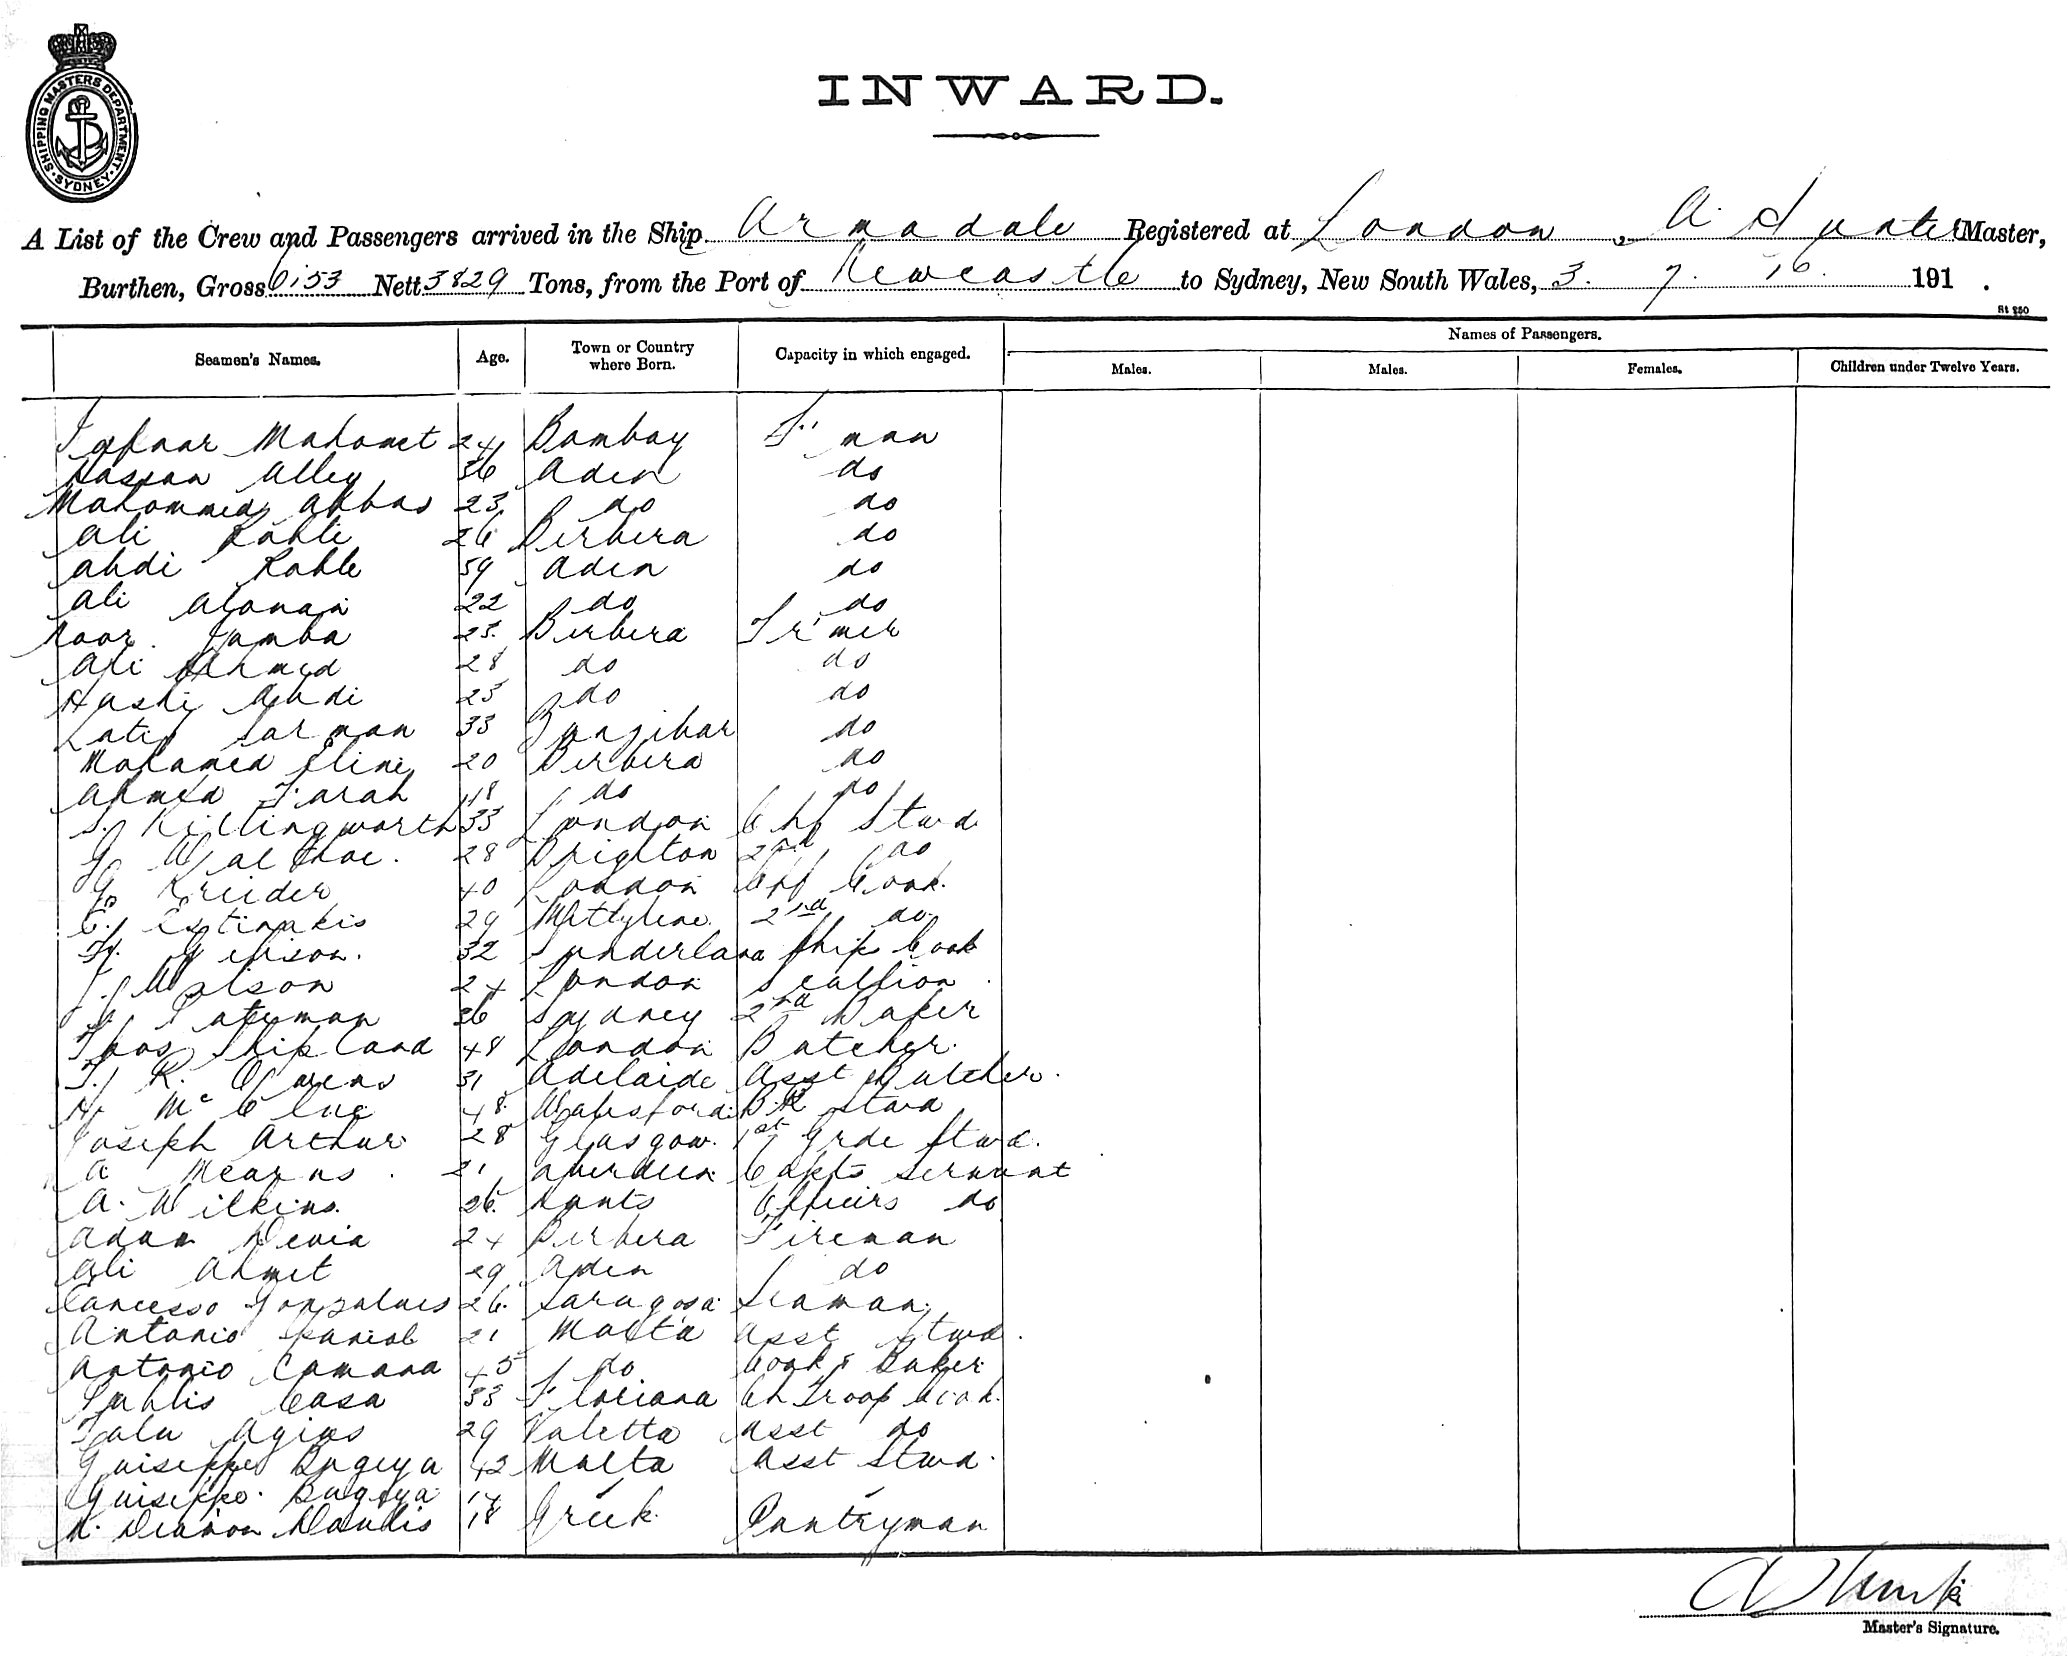 SHIPPING MASTERS DEPARTMENT SYDNEY
INWARD.
A List of the Crew and Passengers arrived in the Ship Armadale Registered at London, A. Master,
Burthen, Gross 6153 Nett 3829 Tons, from the Port of Newcastle to Sydney, New South Wales, 3. 7. 16. 191 .
St 250
Names of Passengers.
Seamen's Names. Age. Town or Country where Born. Capacity in which engaged. Males. Males. Females. Children under Twelve Years.
Mahomet 24 Bombay F'man
Hassan Alley 36 Aden do
Mahommed Abbas 23 do do
Ali Rable 26 Berbera do
Abdi Rable 59 Aden do
Ali 22 do do
Noor Jamba 23. Berbera Tr'mer
Ali Ahmed 28 do do
Hashi Abdi 23 do do
Latif Sarman 33 Zanzibar do
Mohamed Eline 20 Berbera do
Ahmed Farah 18 do do
S. Killingworth 33 London Chf Stwd
28 Brighton 2nd do
G. Kreider 40 London Chf Cook.
C. Estinakis 29 Mittylene. 2nd do.
H. Gibson. 32 Sunderland Ship Cook
J. Wilson 24 London Scullion
Pateman 36 Sydney 2nd Baker
Thos Shipland 48 London Butcher.
T. R. Owens 31 Adelaide Asst Butcher.
H. McClue 48. B.R Stwd
Joseph Arthur 28 Glasgow. 1st Grde Stwd.
A Mearns. 21 Aberdeen Capts Servant
A. Wilkins. 26. Hants Officers do
Adan 24 Berbera Fireman
Ali Ahmet 29 Aden do
Gonzalues 26. Saragosa Seaman.
Antonio 21 Malta Asst Stwd.
Antonio Camana 45 do Cook & Baker
Publis Casa 33 Floriana Ch Troop Cook.
Agius 29 Valetta Asst do
Guiseppe Bugeya 42 Malta Asst Stwd.
Guiseppe. Bugeya 17
18 Greek. Pantryman
Master's Signature.